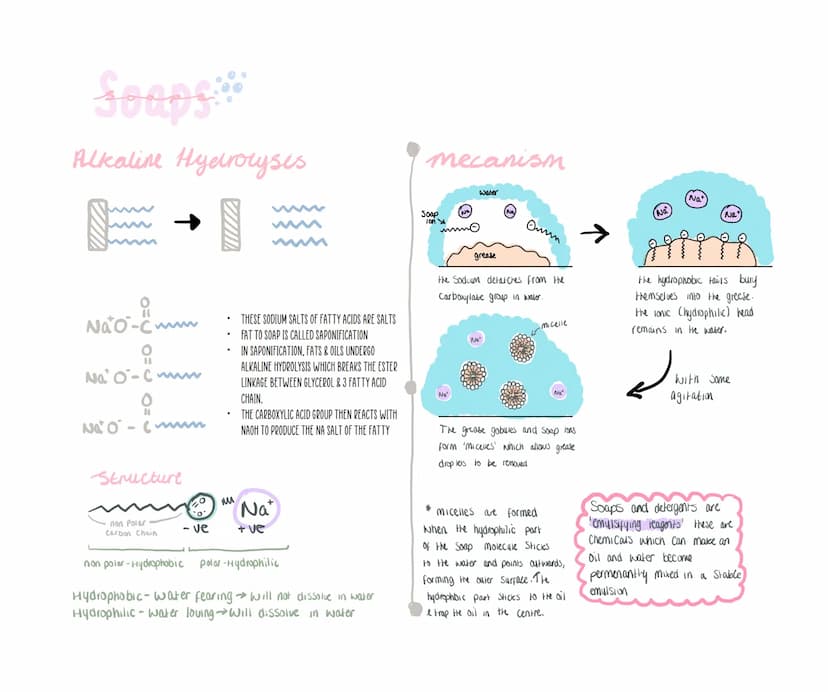 Soaps
soaps
Alkaline Hydrolyses
O
Na⁺O⁻-C
O
Na⁺O⁻-C
O
Na⁺O⁻-C
• THESE SODIUM SALTS OF FATTY ACIDS ARE SALTS
• FAT TO SOAP IS CALLED SAPONIFICATION
• IN SAPONIFICATION, FATS & OILS UNDERGO
ALKALINE HYDROLYSIS WHICH BREAKS THE ESTER
LINKAGE BETWEEN GLYCEROL & 3 FATTY ACID
CHAIN.
• THE CARBOXYLIC ACID GROUP THEN REACTS WITH
NAOH TO PRODUCE THE NA SALT OF THE FATTY
Structure
Na⁺
non polar
carbon chain
-ve
+ve
non polar-Hydrophobic
polar-Hydrophilic
Hydrophobic- Water fearing → Will not dissolve in water
Hydrophilic- Water loving → Will dissolve in water
mecanism
water
Na⁺
Na⁺
Soap
ion
grease
the Sodium detaches from the
Carboxylate group in water.
Na⁺
Na⁺
Na⁺
the hydrophobic tails bury
themselves into the grease.
the ionic (hydrophilic) head
remains in the water.
With some
agitation
micelle
Na⁺
Na⁺
Na⁺
The grease gobules and soap ions
form 'micelles' which allows grease
droplets to be removed
* micelles are formed
when the hydrophilic part
of the soap molecule sticks
to the water and points outwards,
forming the outer surface. The
hydrophobic part sticks to the oil
& trap the oil in the centre.
Soaps and detergents are
'emulsifying reagents' these are
chemicals which can make an
oil and water become
permenantly mixed in a stable
emulsion